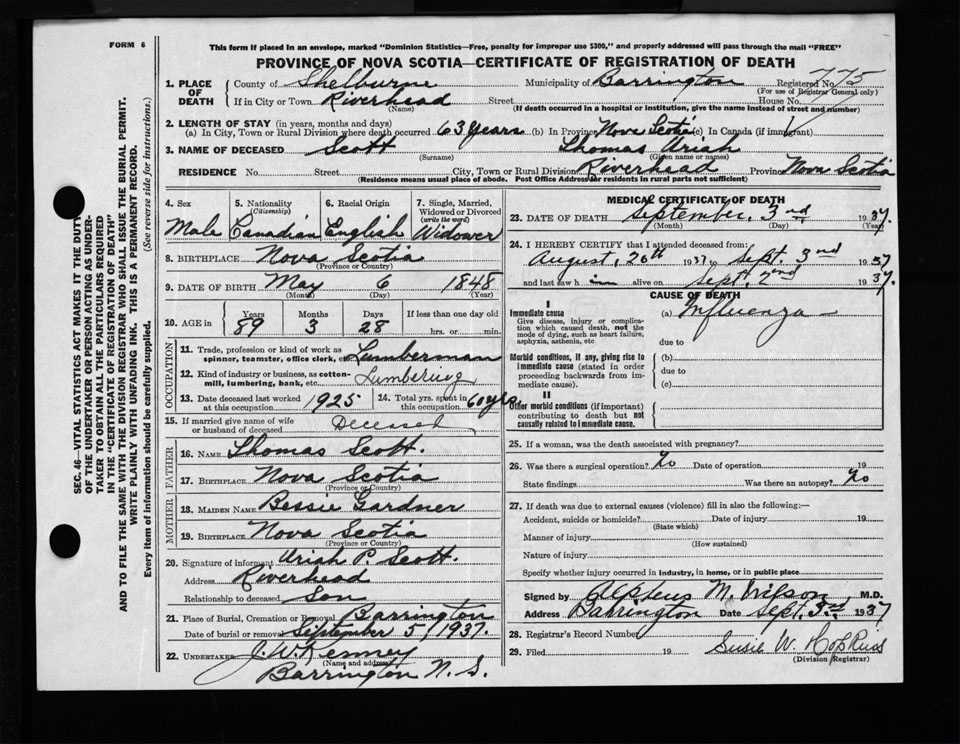 FORM 6
This form if placed in an envelope, marked "Dominion Statistics—Free, penalty for improper use $300," and properly addressed will pass through the mail "FREE"
PROVINCE OF NOVA SCOTIA—CERTIFICATE OF REGISTRATION OF DEATH
SEC. 46—VITAL STATISTICS ACT MAKES IT THE DUTY
OF THE UNDERTAKER OR PERSON ACTING AS UNDER-
TAKER TO OBTAIN ALL THE PARTICULARS REQUIRED
IN THE "CERTIFICATE OF REGISTRATION OF DEATH"
AND TO FILE THE SAME WITH THE DIVISION REGISTRAR WHO SHALL ISSUE THE BURIAL PERMIT.
WRITE PLAINLY WITH UNFADING INK. THIS IS A PERMANENT RECORD.
Every item of information should be carefully supplied. (See reverse side for instructions.)
1. PLACE OF DEATH County of Shelburne Municipality of Barrington Registered No. 775
(For use of Registrar General only)
If in City or Town Riverhead Street House No.
(Name) (If death occurred in a hospital or institution, give the name instead of street and number)
2. LENGTH OF STAY (in years, months and days)
(a) In City, Town or Rural Division where death occurred 63 years (b) In Province Nova Scotia (c) In Canada (if immigrant)
3. NAME OF DECEASED Scott Thomas Uriah
(Surname) (Given name or names)
RESIDENCE No. Street City, Town or Rural Division Riverhead Province Nova Scotia
(Residence means usual place of abode. Post Office Address for residents in rural parts not sufficient)
4. Sex 5. Nationality (Citizenship) 6. Racial Origin 7. Single, Married, Widowed or Divorced (write the word)
Male Canadian English Widower
8. BIRTHPLACE Nova Scotia
(Province or Country)
9. DATE OF BIRTH May 6 1848
(Month) (Day) (Year)
10. AGE in Years Months Days If less than one day old
89 3 28 hrs. or min.
OCCUPATION
11. Trade, profession or kind of work as spinner, teamster, office clerk, etc. Lumberman
12. Kind of industry or business, as cotton-mill, lumbering, bank, etc. Lumbering
13. Date deceased last worked at this occupation 1925 14. Total yrs. spent in this occupation 60 yrs.
15. If married give name of wife or husband of deceased Deceased
FATHER
16. NAME Thomas Scott.
17. BIRTHPLACE Nova Scotia
(Province or Country)
MOTHER
18. MAIDEN NAME Bessie Gardner
19. BIRTHPLACE Nova Scotia
(Province or Country)
20. Signature of informant Uriah P. Scott.
Address Riverhead
Relationship to deceased Son
21. Place of Burial, Cremation or Removal Barrington
Date of burial or removal September 5, 1937.
22. UNDERTAKER J. W. Kenney
(Name and address)
Barrington N. S.
MEDICAL CERTIFICATE OF DEATH
23. DATE OF DEATH September, 3rd 1937.
(Month) (Day) (Year)
24. I HEREBY CERTIFY that I attended deceased from:
August, 26th 1937 to Sept. 3rd 1937
and last saw h im alive on Sept. 2nd 1937.
CAUSE OF DEATH
I
Immediate cause (a) Influenza
Give disease, injury or complication which caused death, not the mode of dying, such as heart failure, asphyxia, asthenia, etc
due to
Morbid conditions, if any, giving rise to immediate cause (stated in order proceeding backwards from immediate cause). (b)
due to
(c)
II
Other morbid conditions (if important) contributing to death but not causally related to immediate cause.
25. If a woman, was the death associated with pregnancy?
26. Was there a surgical operation? No Date of operation 19
State findings Was there an autopsy? No
27. If death was due to external causes (violence) fill in also the following:—
Accident, suicide or homicide? Date of injury 19
(State which)
Manner of injury
(How sustained)
Nature of injury
Specify whether injury occurred in industry, in home, or in public place
Signed by Alpheus M. Wilson M.D.
Address Barrington Date Sept. 3rd 1937
28. Registrar's Record Number
29. Filed 19 Susie W. Hopkins
(Division Registrar)